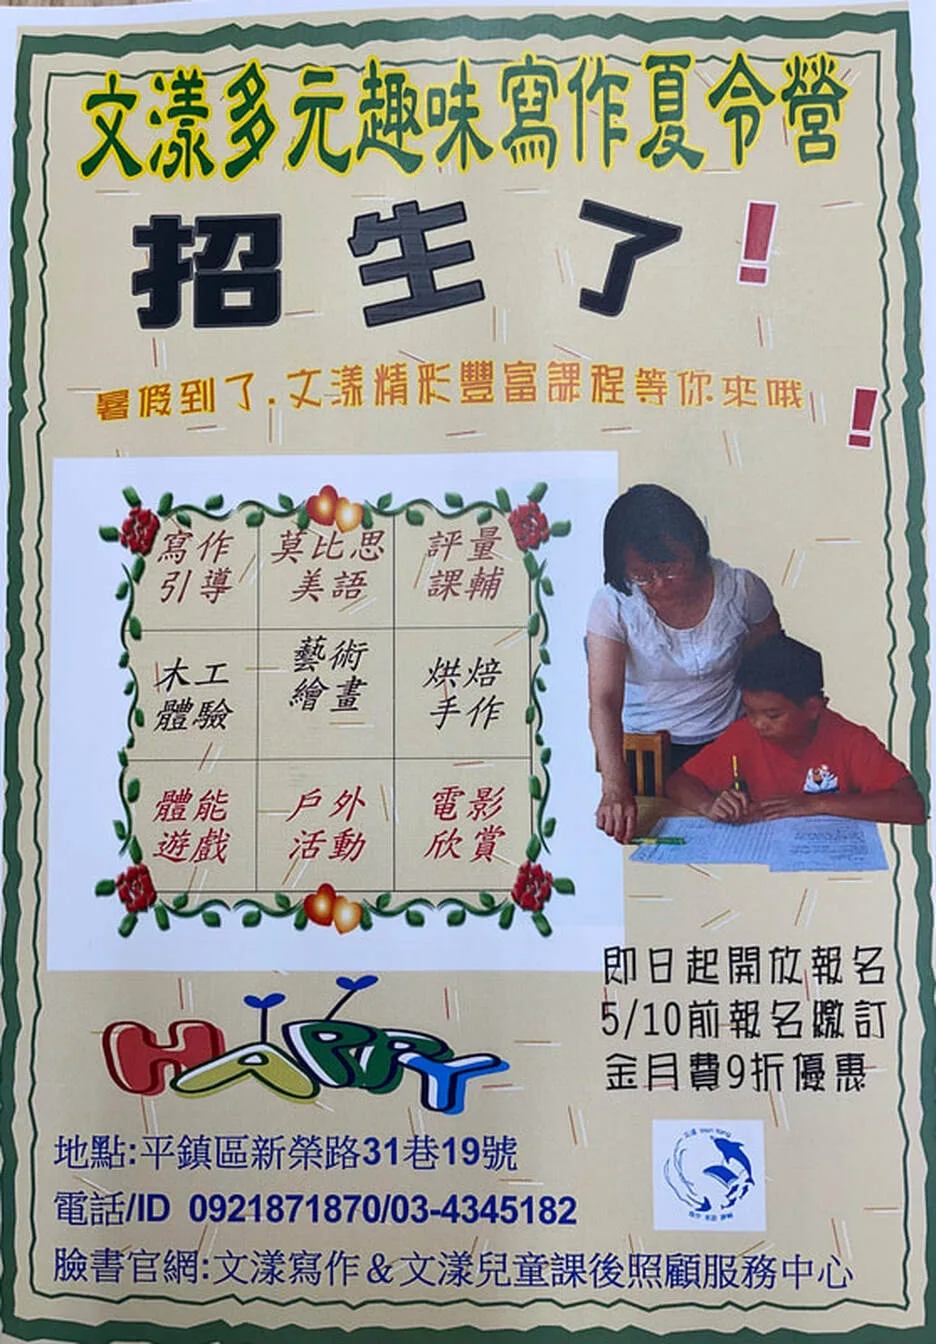 文漾多元趣味寫作夏令營
招生了!
暑假到了.文漾精彩豐富課程等你來哦!
寫作
引導
莫比思
美語
評量
課輔
木工
體驗
藝術
繪畫
烘焙
手作
體能
遊戲
戶外
活動
電影
欣賞
即日起開放報名
5/10前報名繳訂
金月費9折優惠
HAPPY
地點:平鎮區新榮路31巷19號
電話/ID 0921871870/03-4345182
臉書官網:文漾寫作&文漾兒童課後照顧服務中心